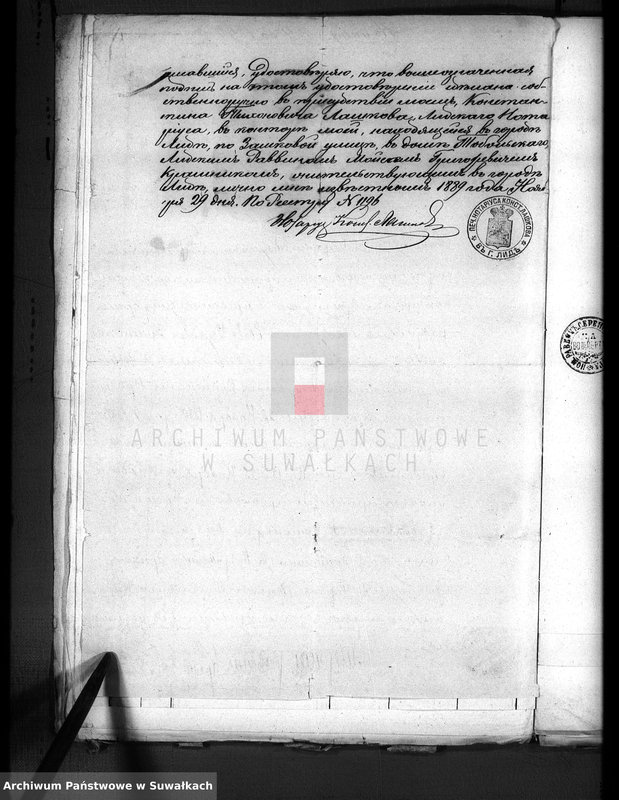 Удостовѣряю, что вышеозначенная
подпись на этомъ удостовѣреніи сдѣлана соб-
ственноручно въ присутствіи моемъ, Констан-
тина Тихоновича Лашкова, Лидскаго Нота-
ріуса, въ конторѣ моей, находящейся въ городѣ
Лидѣ, по Замковой улицѣ, въ домѣ
Лидскимъ Раввиномъ Григорьевичемъ
жительствующимъ въ городѣ
Лидѣ, лично мнѣ извѣстнымъ 1889 года Нояб-
ря 29 дня. По Реестру N 1196
Нотаріусъ Конст. Лашковъ
ПЕЧ. НОТАРІУСА КОНСТ. ЛАШКОВА
ВЪ Г. ЛИДѢ
ARCHIWUM PAŃSTWOWE
W SUWAŁKACH
Archiwum Państwowe w Suwałkach